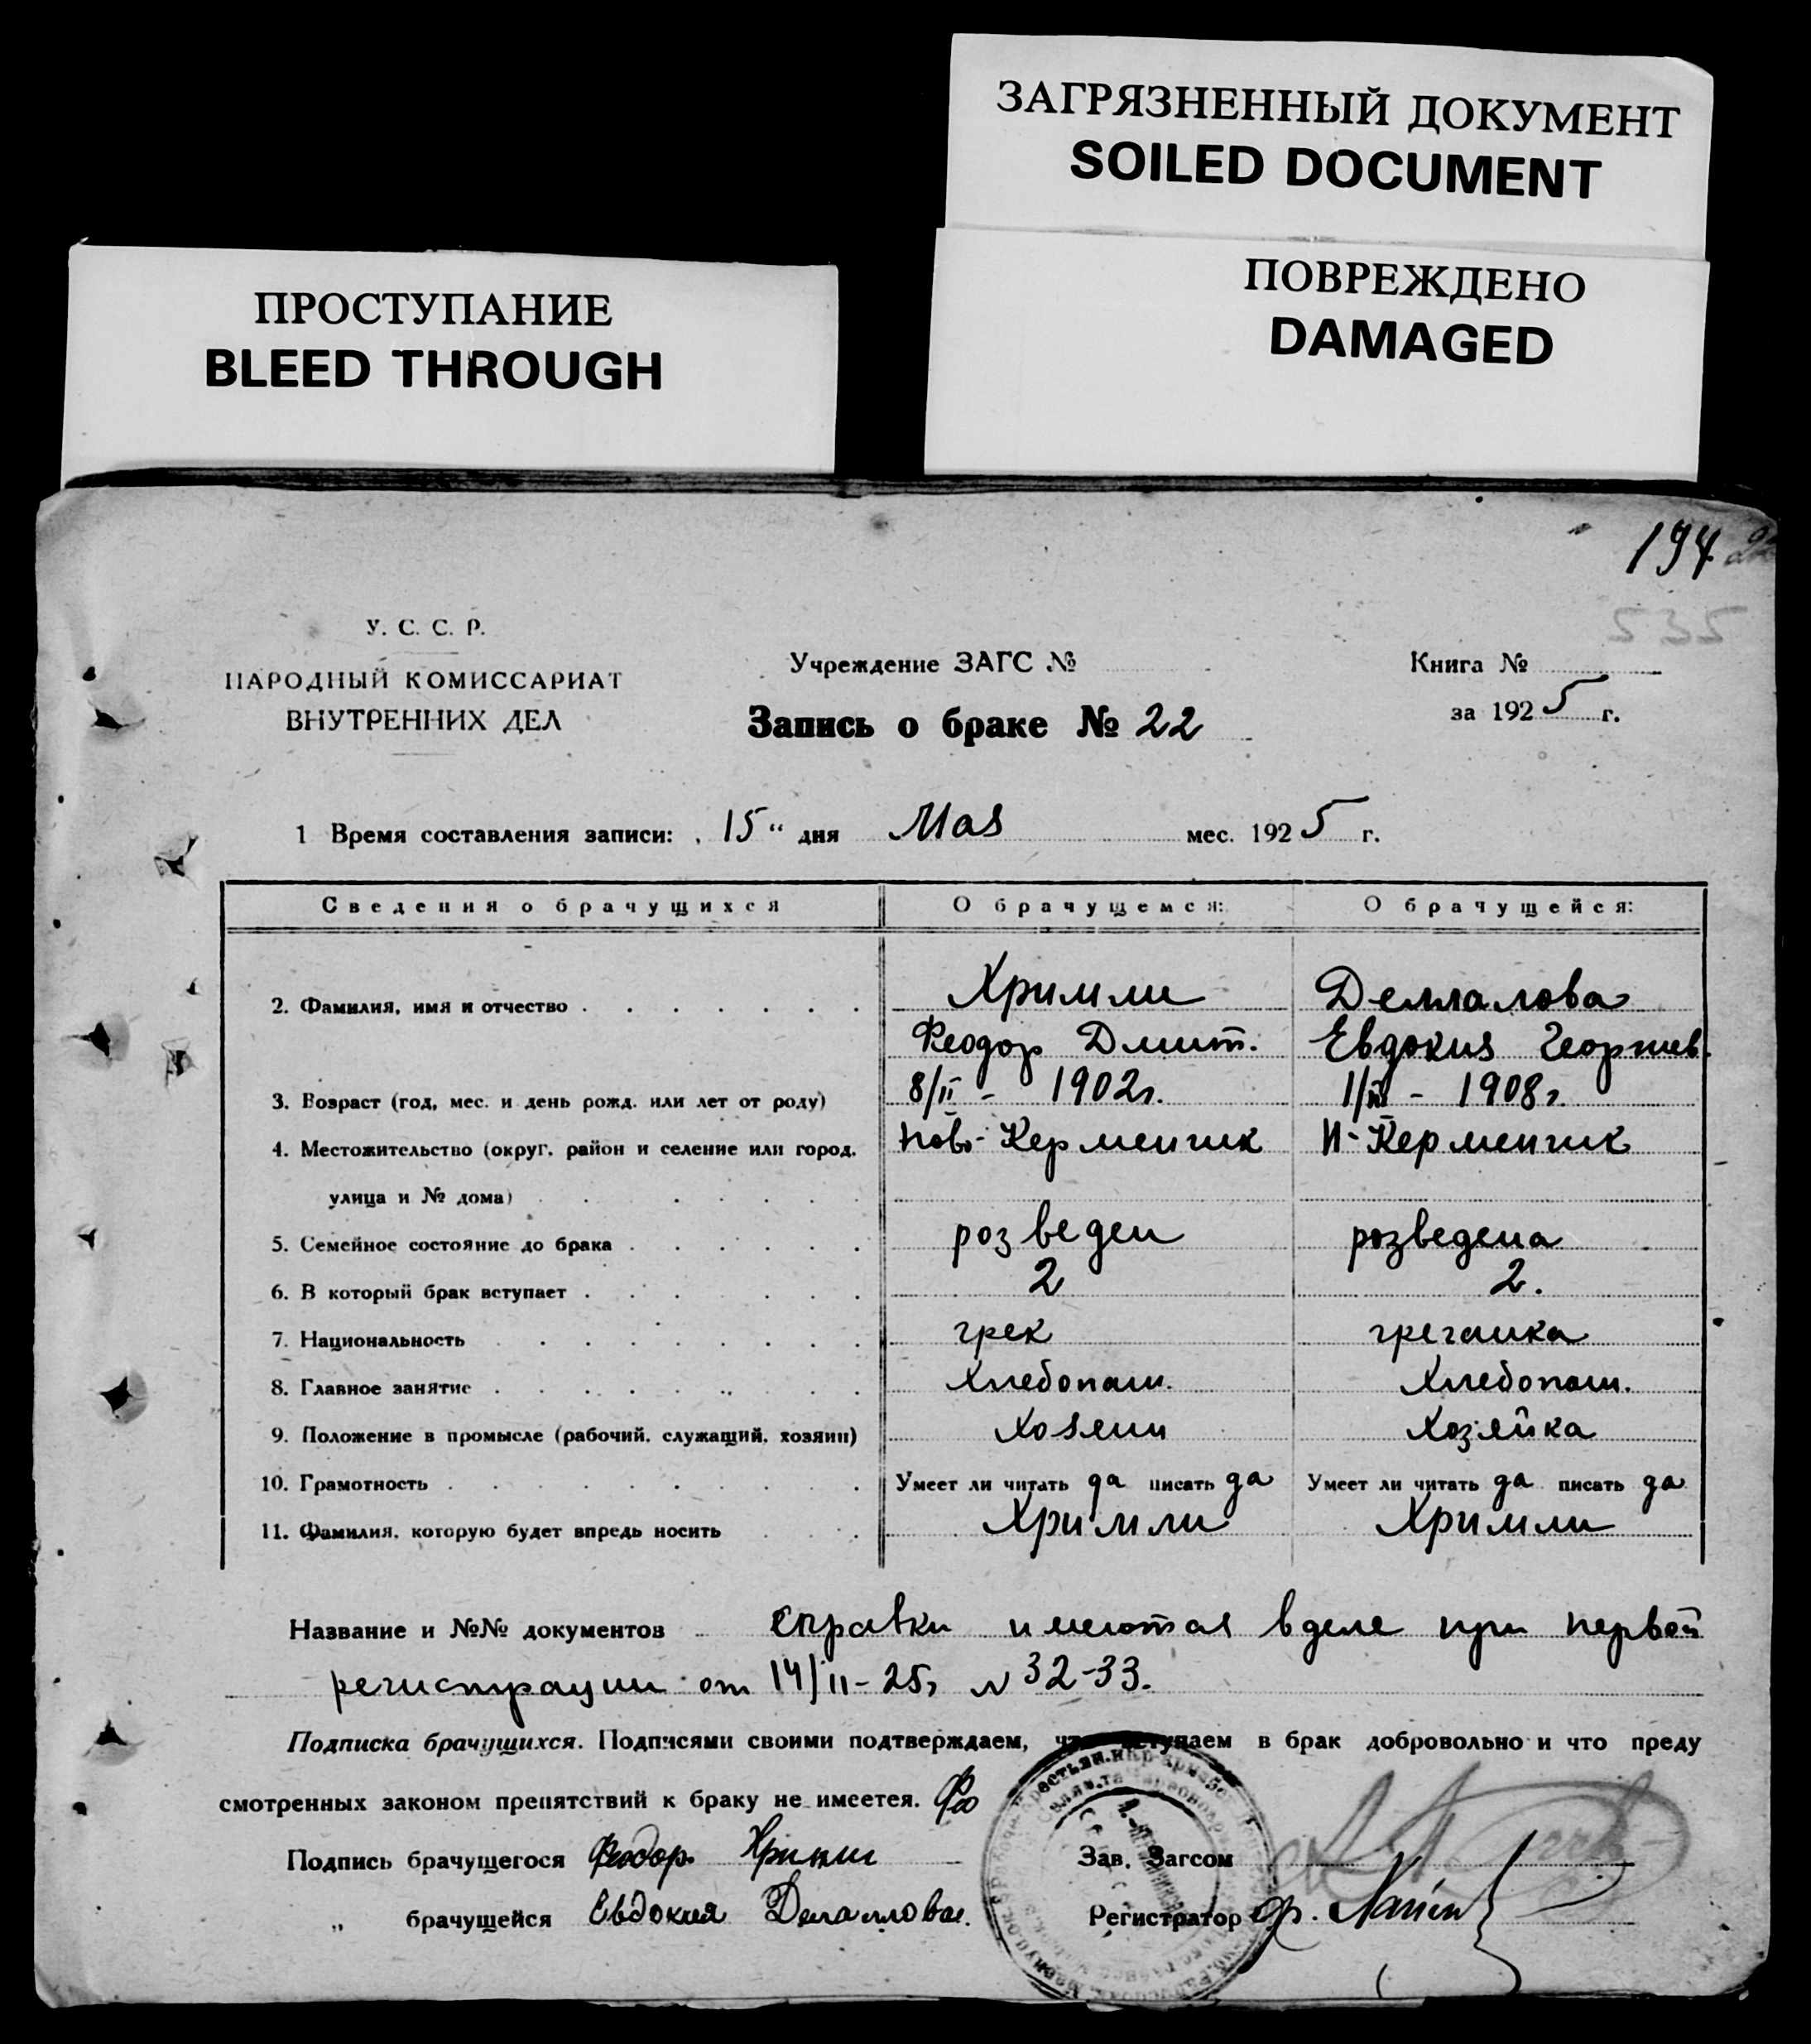 ЗАГРЯЗНЕННЫЙ ДОКУМЕНТ
SOILED DOCUMENT
ПРОСТУПАНИЕ
BLEED THROUGH
ПОВРЕЖДЕНО
DAMAGED
194
535
У. С. С. Р.
НАРОДНЫЙ КОМИССАРИАТ
ВНУТРЕННИХ ДЕЛ
Учреждение ЗАГС №
Запись о браке № 22
Книга №
за 1925 г.
1 Время составления записи: „ 15 “ дня Мая мес. 1925 г.
Сведения о брачущихся О брачущемся: О брачущейся:
2. Фамилия, имя и отчество Хримли Деллалова
Феодор Дмит. Евдокия Георгиев.
3. Возраст (год, мес. и день рожд. или лет от роду) 8/II - 1902г. 1/III - 1908г.
4. Местожительство (округ, район и селение или город, Ново-Керменчик Н-Керменчик
улица и № дома)
5. Семейное состояние до брака розведен розведена
6. В который брак вступает 2 2.
7. Национальность грек гречанка
8. Главное занятие Хлебопаш. Хлебопаш.
9. Положение в промысле (рабочий, служащий, хозяин) Хозяин Хозяйка
10. Грамотность Умеет ли читать да писать да Умеет ли читать да писать да
11. Фамилия, которую будет впредь носить Хримли Хримли
Название и №№ документов справки имеются в деле при первой
регистрации от 14/II-25г N 32-33.
Подписка брачущихся. Подписями своими подтверждаем, что вступаем в брак добровольно и что преду
смотренных законом препятствий к браку не имеется. Фео
Подпись брачущегося Феодор Хримли Зав. Загсом
„ брачущейся Евдокия Деллалова. Регистратор